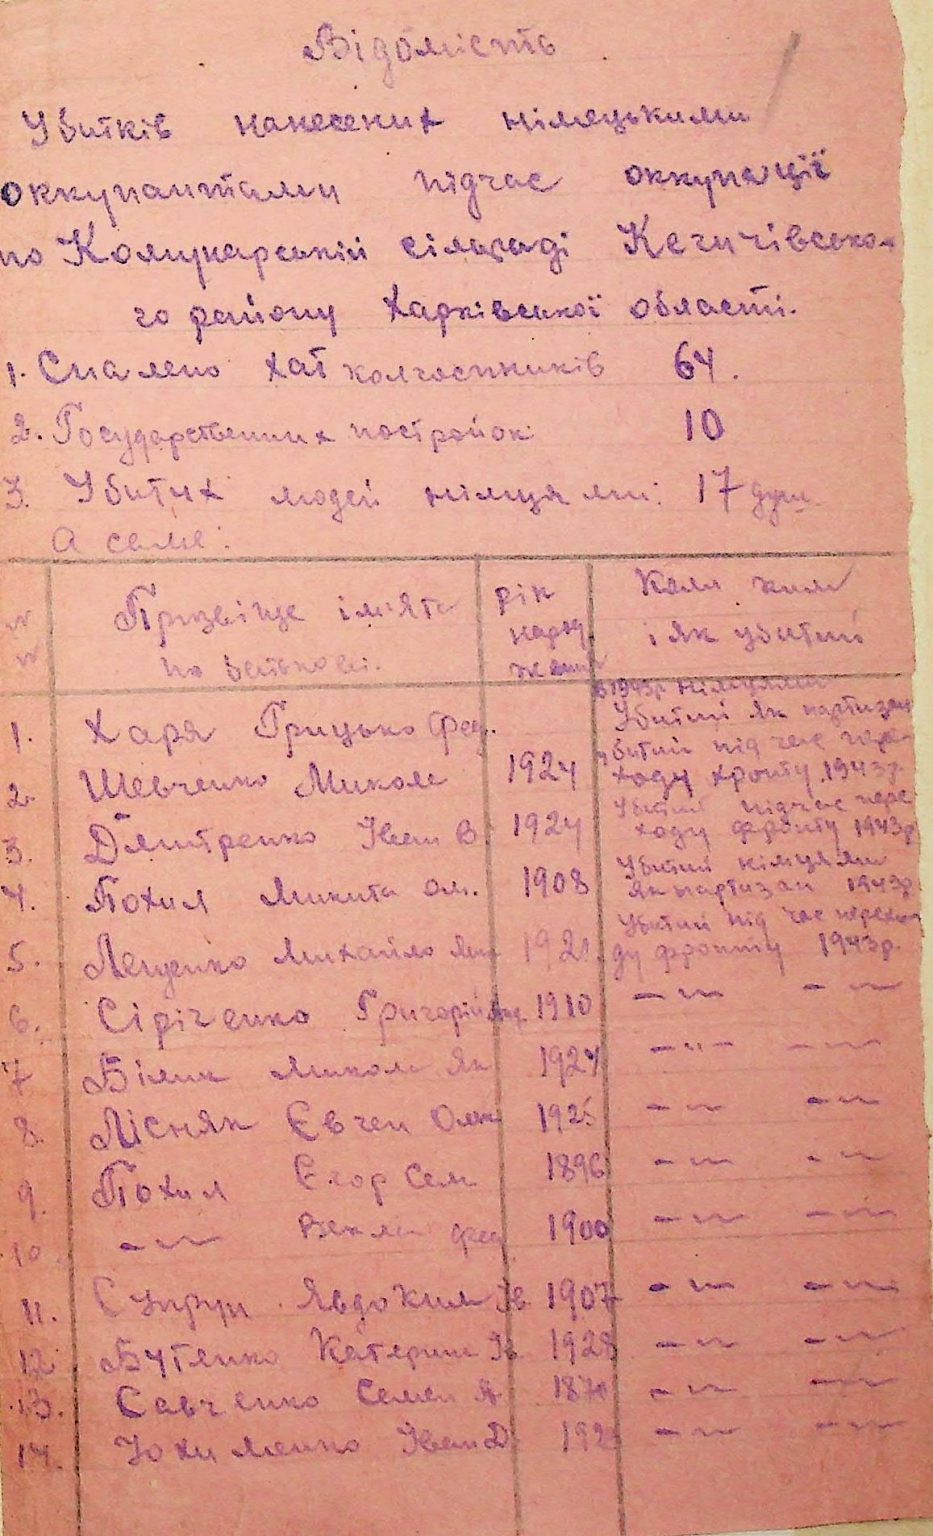 Відомість
Убитків нанесених німецькими
оккупантами підчас оккупації
по Комунарській сільраді Кегичівсько-
го району Харківської області.
1. Спалено хат колгоспників 64.
2. Государственних постройок 10
3. Убитих людей німцями: 17 душ
А саме:
№ № Прізвище ім'ята по батькові. рік народження Коли ким і як убитий
1. Харя Грицько Фед. в 1943р німцями Убитий як партизан
2. Шевченко Микола 1924 убитий під час пере-ходу фронту 1943р.
3. Дмитренко Іван В. 1924 Убитий підчас пере ходу фронту 1943р
4. Похил Микита Ом. 1908 Убитий німцями як партизан 1943р.
5. Лещенко Михайло Убитий під час перехо ду фронту 1943р.
6. Сіріченко Григорій Анд 1910 – " – – " –
7 Білик Микола Як 1924 – " – – " –
8. Лісняк Євген Омел 1925 – " – – " –
9. Похил Єгор Сем 1896 – " – – " –
10. – " – Векла фед 1900 – " – – " –
11. Супрун Явдоким Ів 1907 – " – – " –
12 Бутенко Катерина Ів 1928 – " – – " –
13. Савченко Семен Я. – " – – " –
14. Юхименко Іван Д – " – – " –